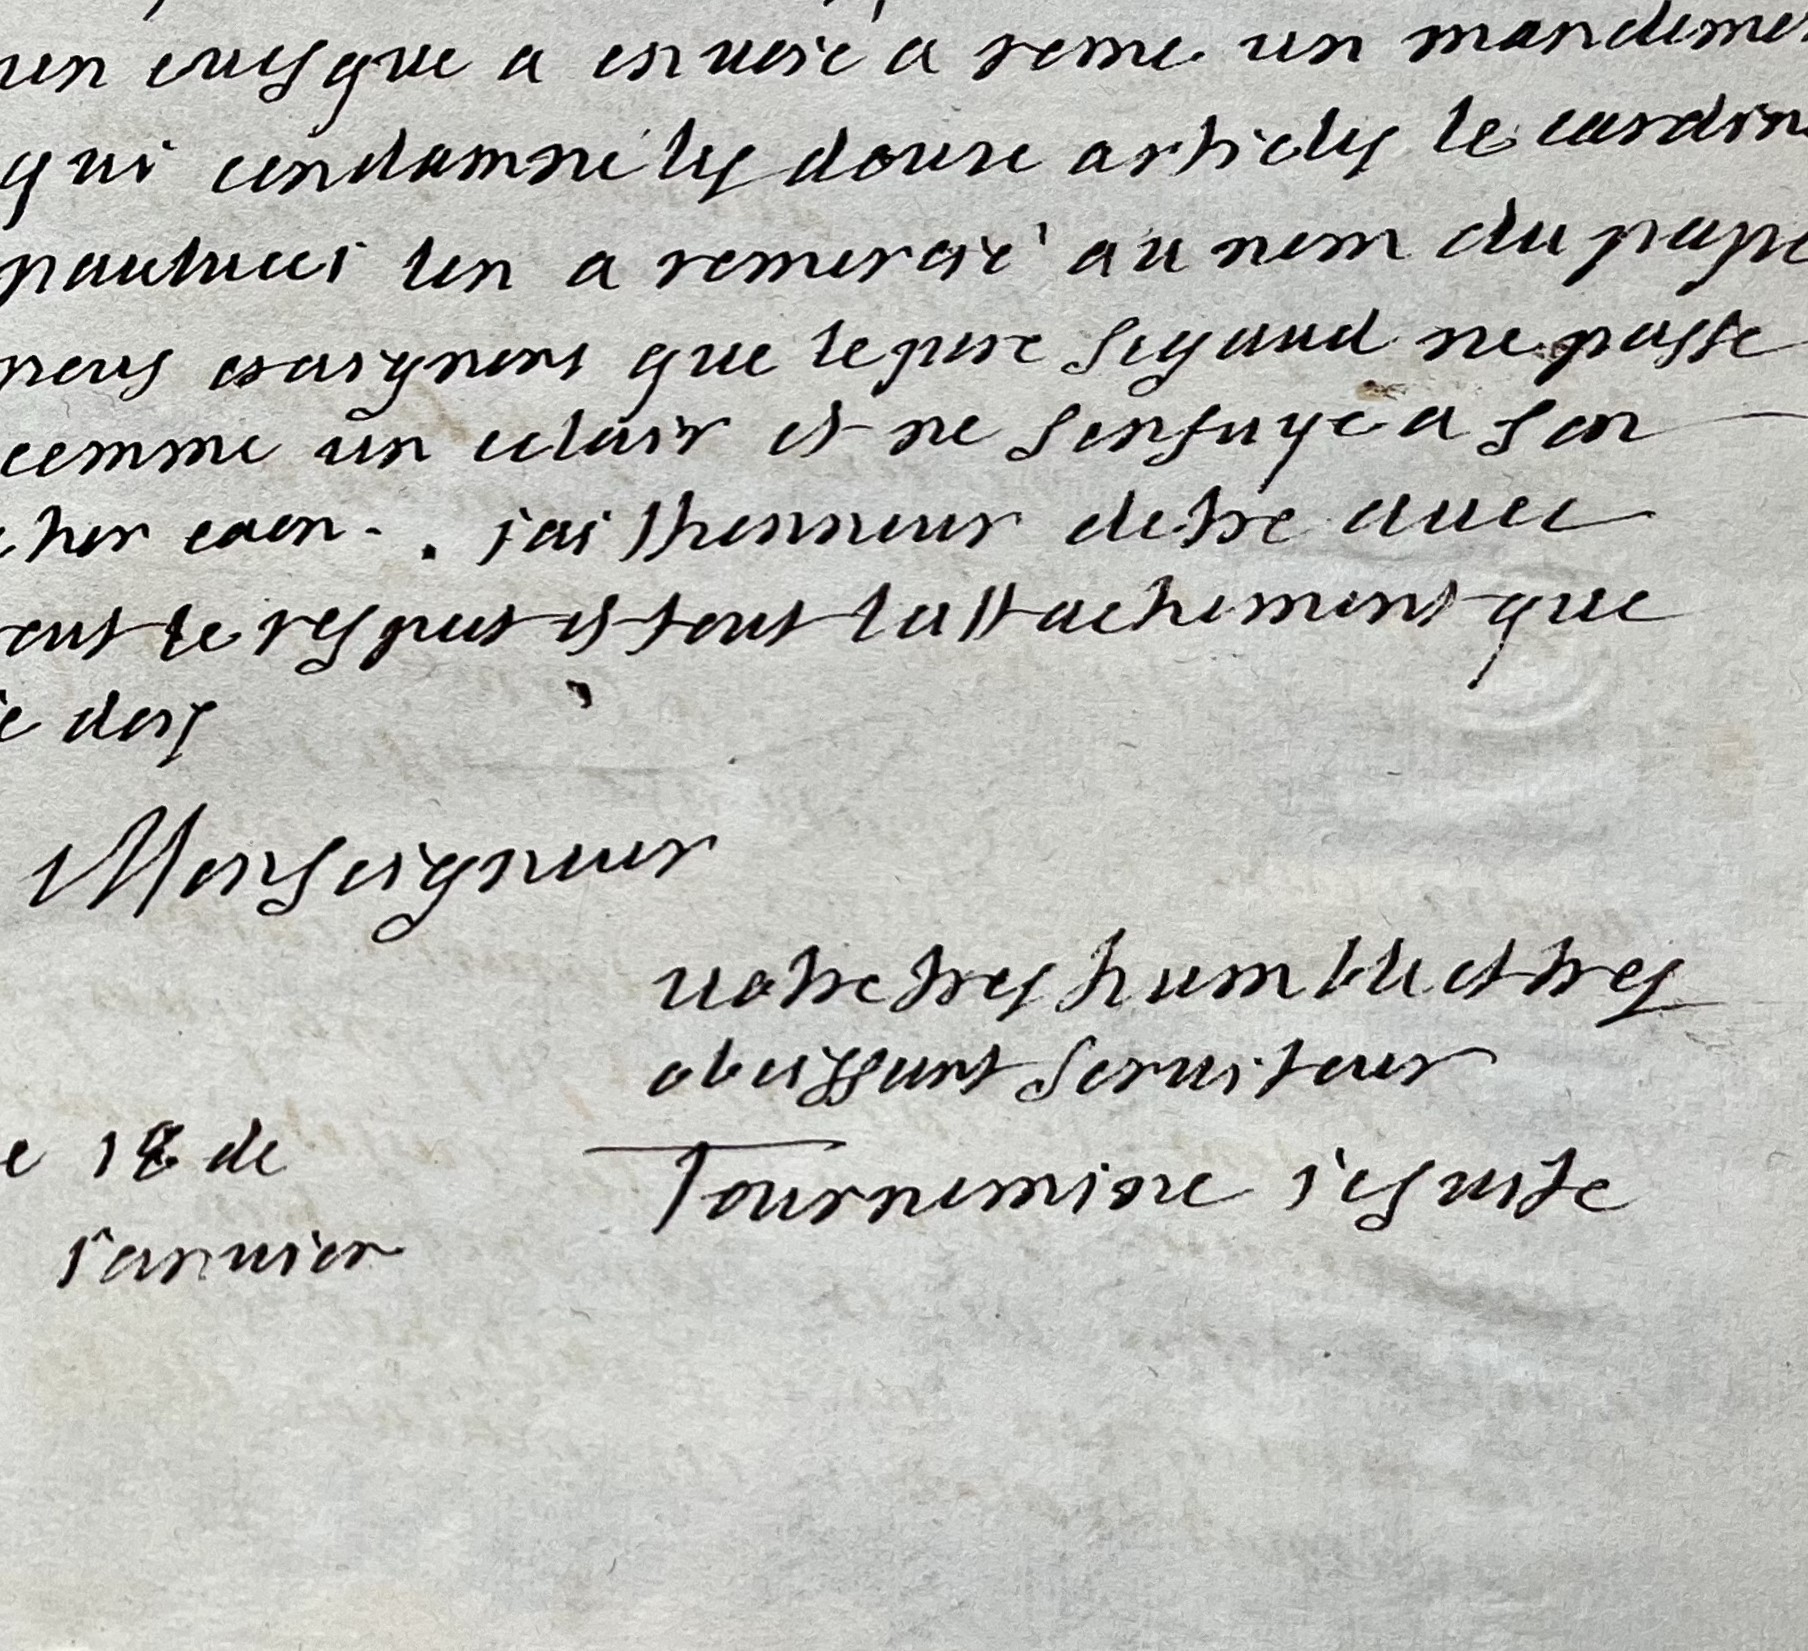 un euesque a enuoié a rome un mandemen
qui condamne les douze articles le cardin
paulucci len a remercié au nom du pape
nous craignons que le pere Segaud ne passe
comme un eclair et ne senfuye a son
cher caen. jai lhonneur detre auec
tout le respect et tout lattachement que
ie dois
Monseigneur
votre tres humble et tres
obeissant seruiteur
e 18 de Tournemine iesuite
ianuier